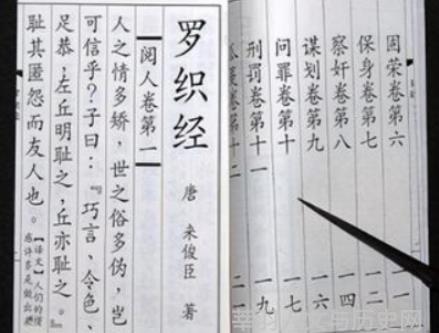 固荣卷第六
保身卷第七
察奸卷第八 一四
谋划卷第九 一六
问罪卷第十
刑罚卷第十一 一九
卷第十二
罗织经
唐 来俊臣 著
阅人卷第一
人之情多矫，世之俗多伪，岂
可信乎？子曰：『巧言、令色、
足恭，左丘明耻之，丘亦耻之。』
耻其匿怨而友人也。【译文】人们的情
感许多是做出
与历史网